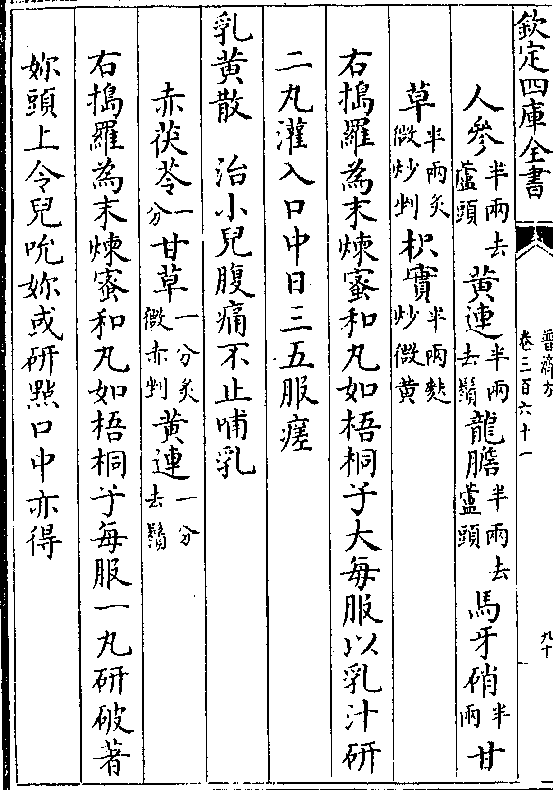 欽定四庫全書
普濟方
卷三百六十一
九十
人參半兩去蘆頭黃連半兩去鬚龍膽半兩去蘆頭馬牙硝半兩甘
草半兩炙微炒剉枳實半兩麩炒微黃
右搗羅為末煉蜜和丸如梧桐子大每服以乳汁研
二丸灌入口中日三五服瘥
乳黃散 治小兒腹痛不止哺乳
赤茯苓一分甘草一分炙微赤剉黃連一分去鬚
右搗羅為末煉蜜和丸如梧桐子每服一丸研破著
妳頭上令兒吮妳或研點口中亦得